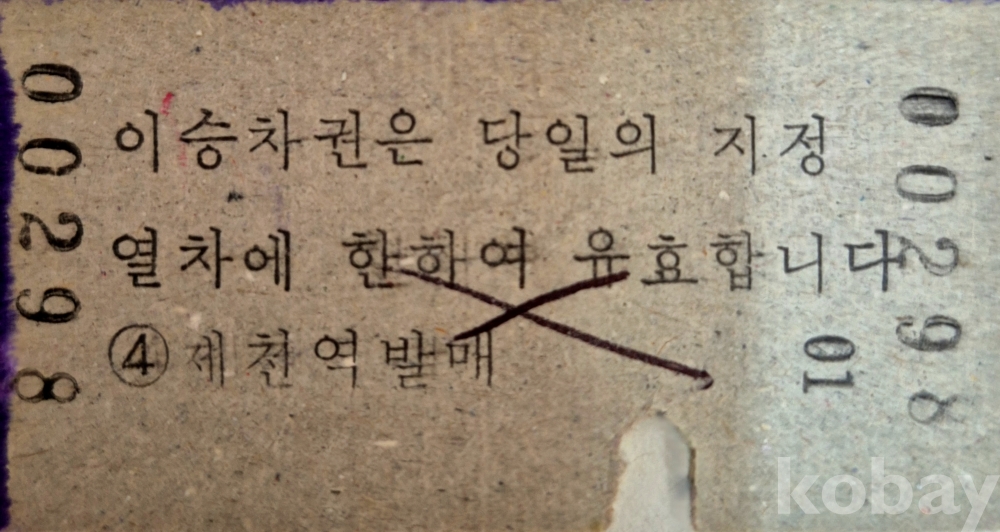 00298
이승차권은 당일의 지정
열차에 한하여 유효합니다
④제천역발매
01
00298
kobay